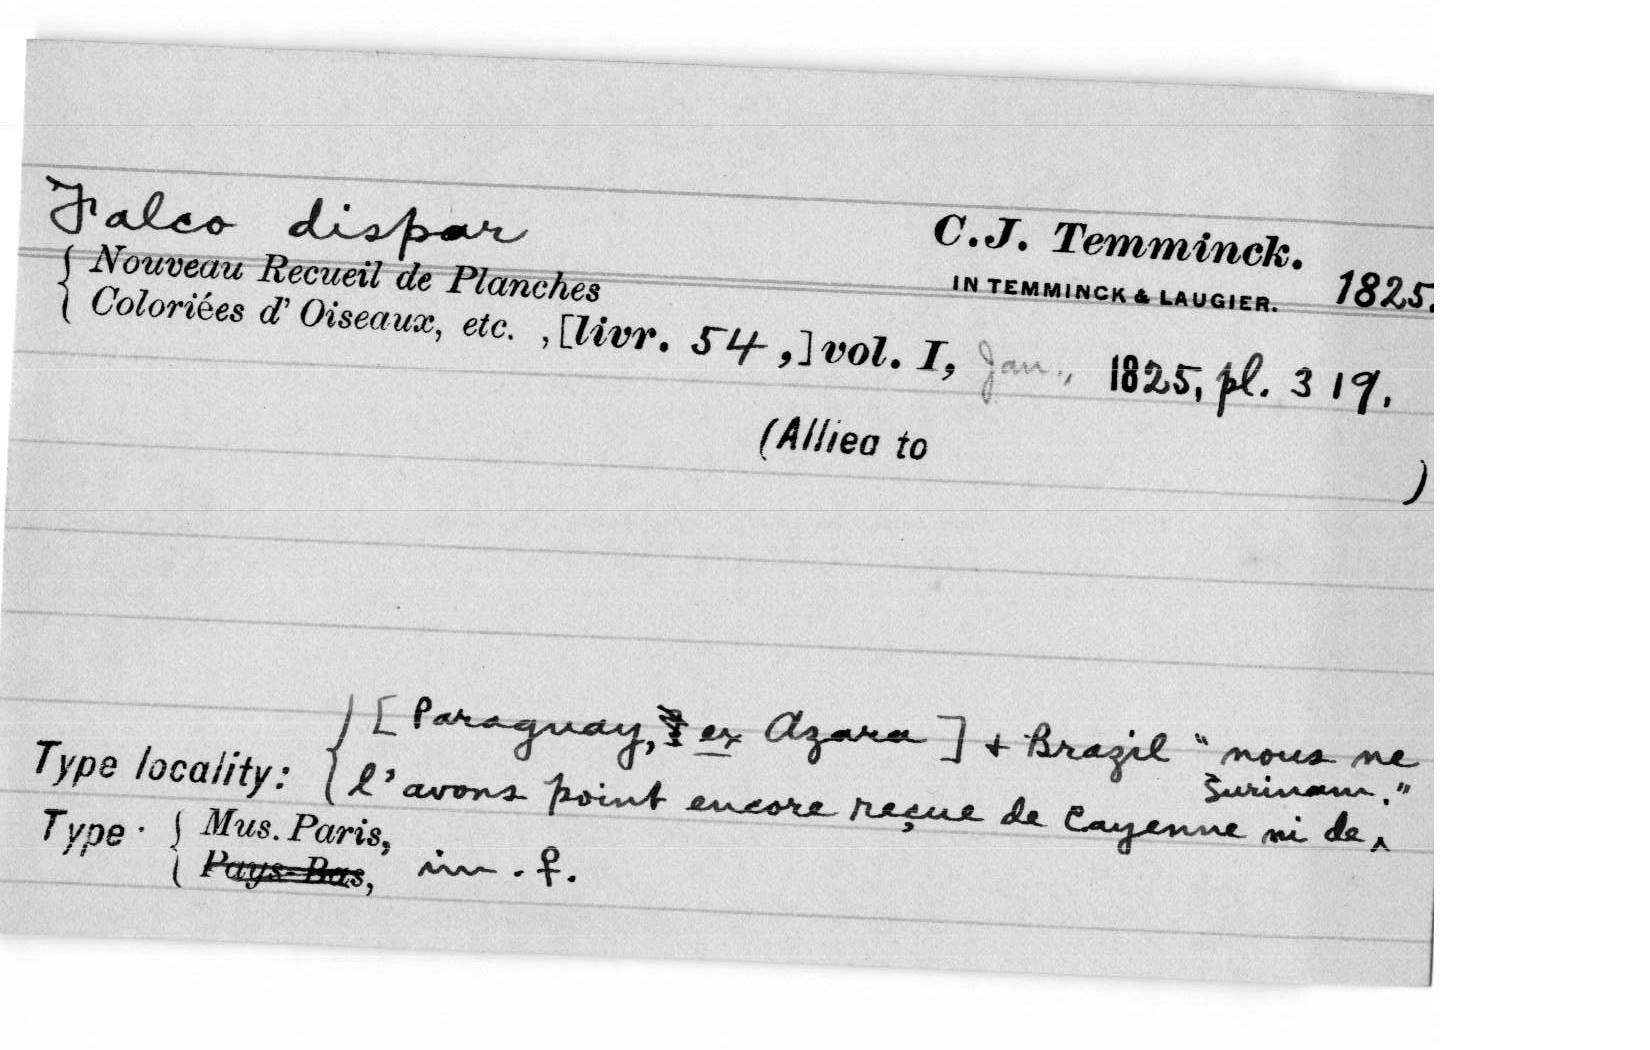 Falco dispar C.J. Temminck.
IN TEMMINCK & LAUGIER. 1825.
{ Nouveau Recueil de Planches
Coloriées d' Oiseaux, etc. , [livr. 54 ,] vol. I, Jan., 1825, pl. 319.
(Allied to )
Type locality: { [Paraguay, ex Azara] + Brazil "nous ne
l'avons point encore reçue de Cayenne ni de ‸ Surinam."
Type · { Mus. Paris,
Pays-Bas, im. ♀.